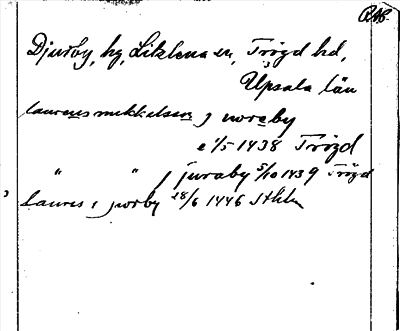 RAP.
Djurby, by, Litslena sn, Trögd hd,
Upsala län
laurens mikkelson j uoraby
e 1/5 1438 Trögd
" " j juraby 5/10 1439 Trögd
laures i jworby 28/6 1446 Sthlm